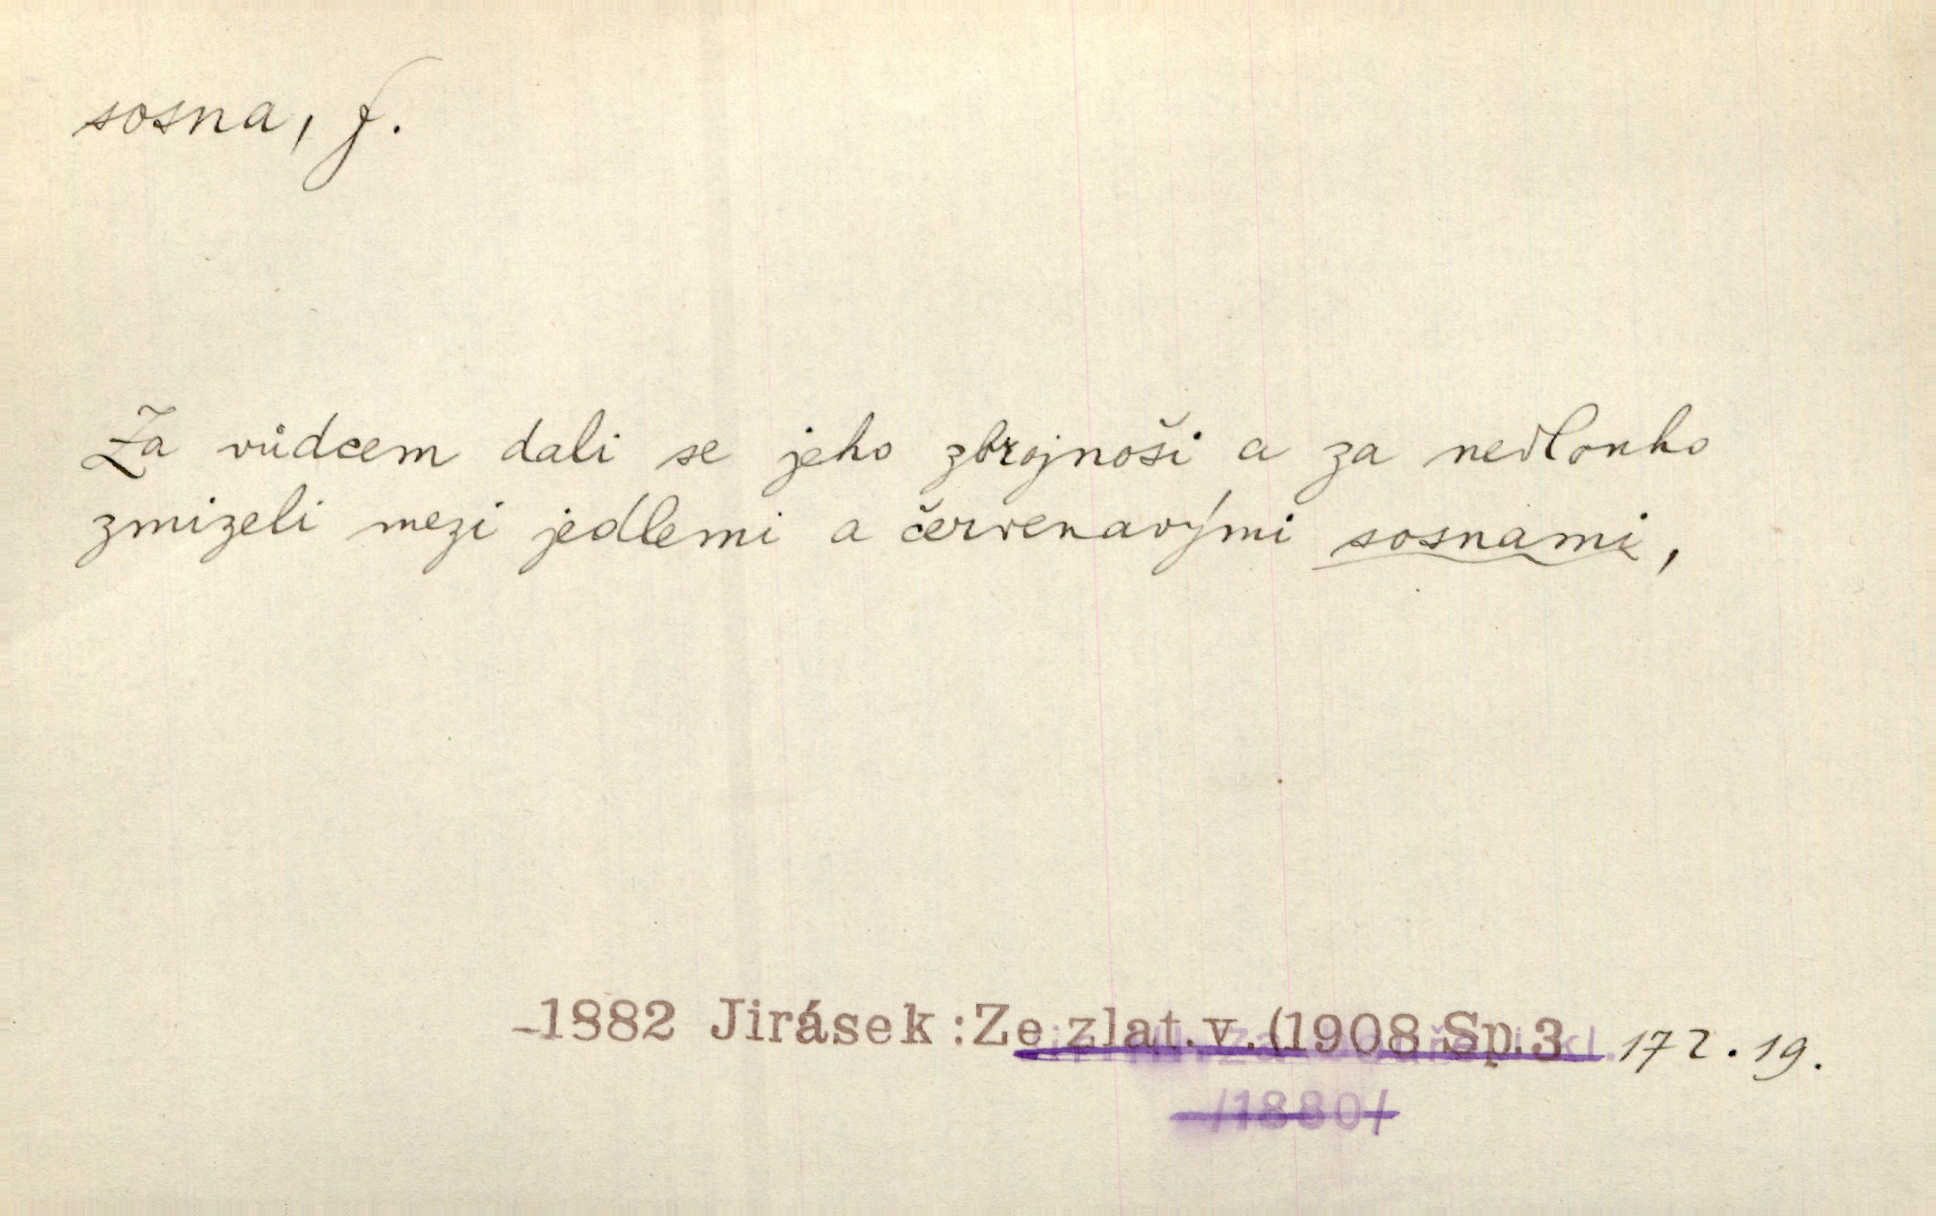 sosna, f.
Za vůdcem dali se jeho zbrojnoši a za nedlouho
zmizeli mezi jedlemi a červenavými sosnami,
-1882 Jirásek:Ze zlat.v.(1908 Sp.3 172.19.
/1880/